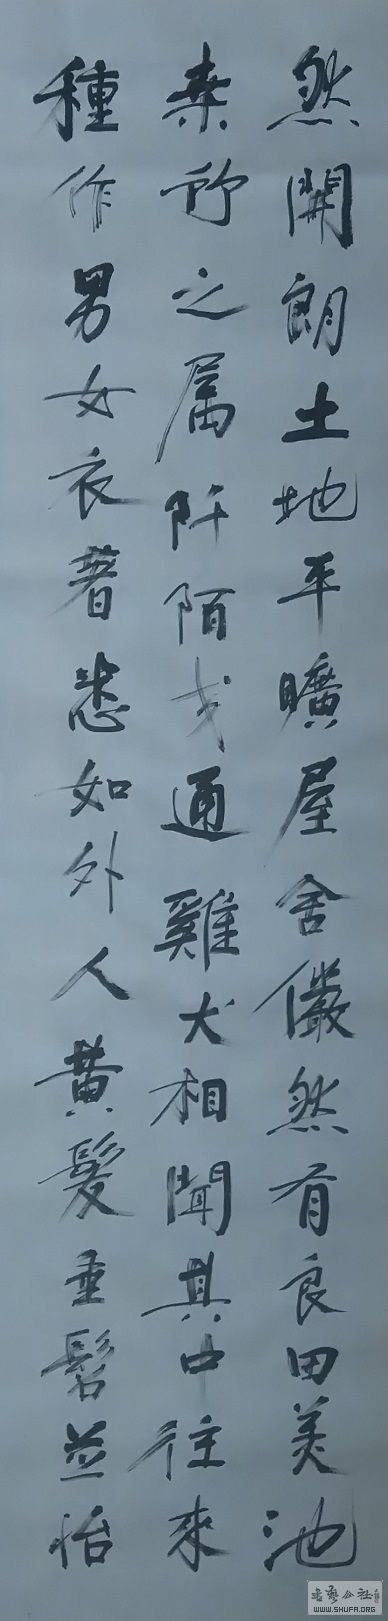 然開朗土地平曠屋舍儼然有良田美池
桑竹之属阡陌交通雞犬相聞其中往來
種作男女衣著悉如外人黄髮垂髫並怡
書藝公社
WWW.SHUFA.ORG